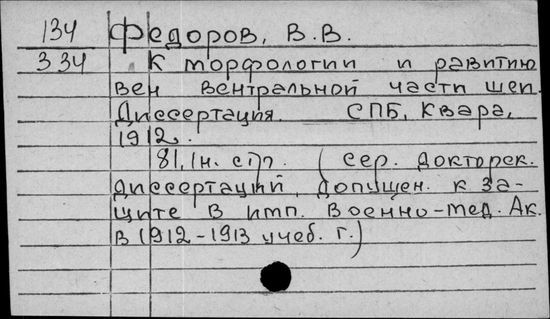 134 Федоров, В.В.
334 К морфологии и равитию
вен вентральной части шеи.
Диссертация. СПБ, Квара,
1912.
81, 1н. стр. (сер. докторск.
диссертаций, допущен. к за-
щите в имп. Военно-мед. Ак.
в 1912-1913 учеб. г.)